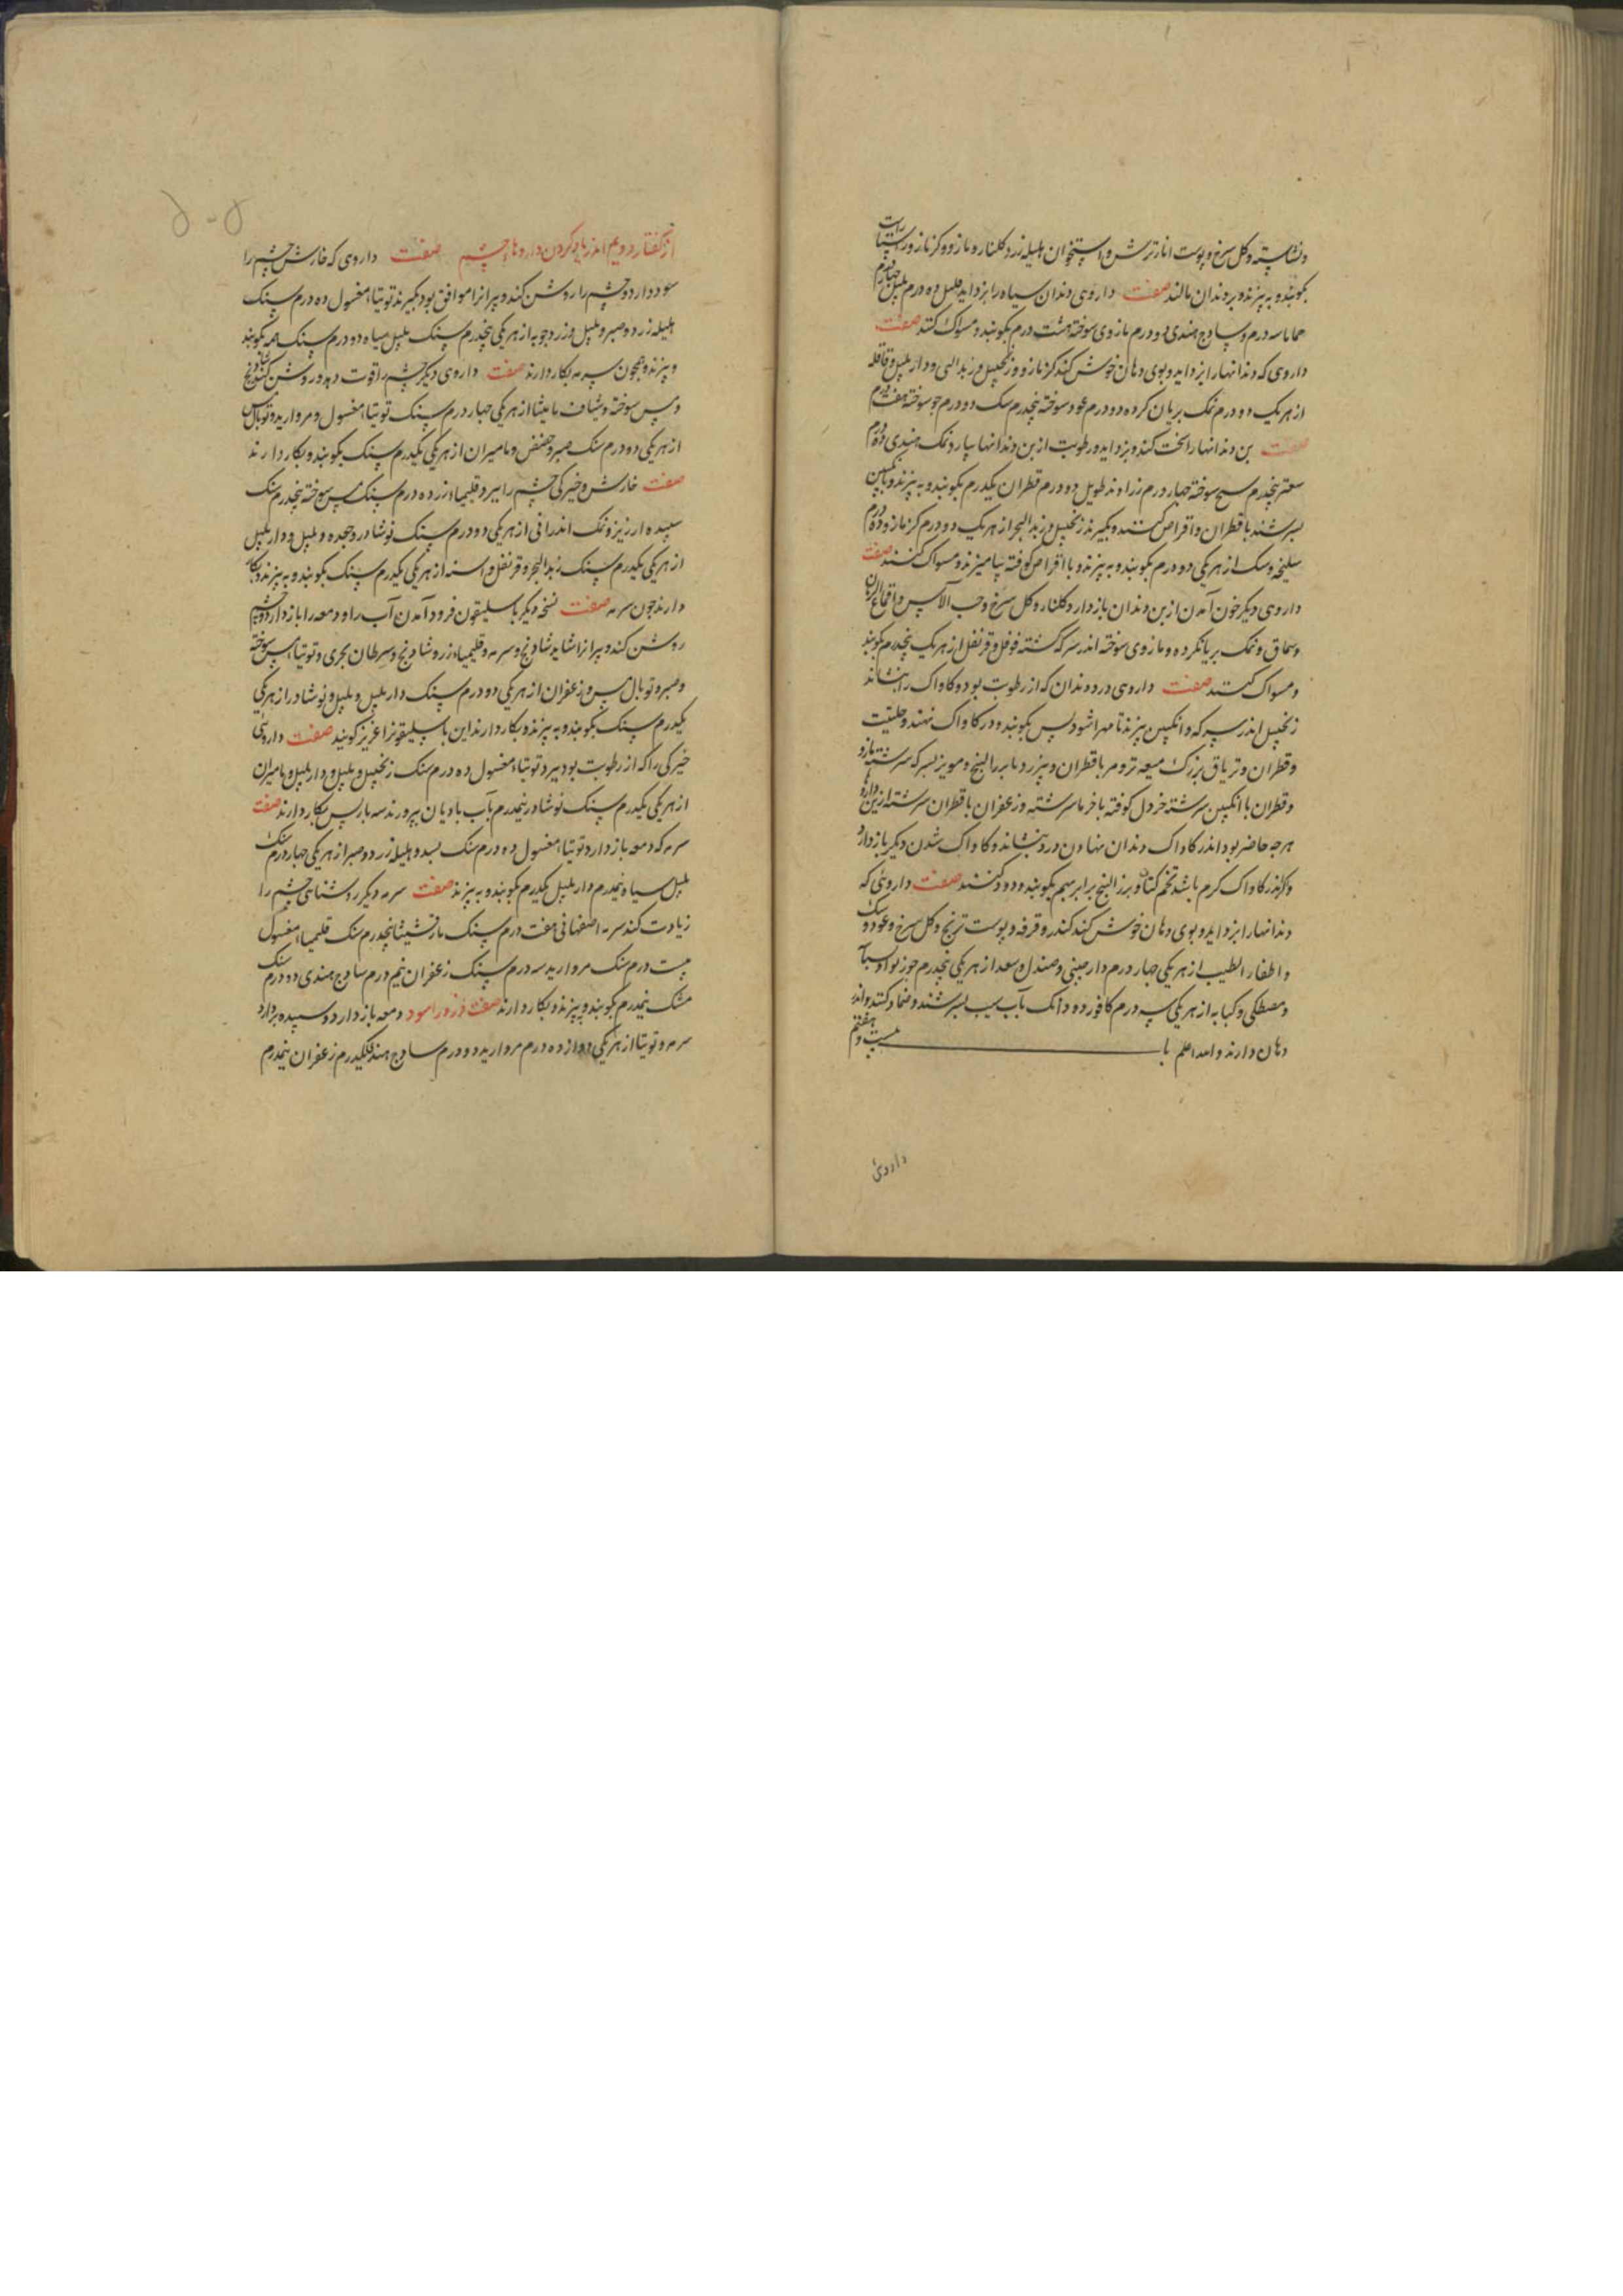 ونشاسته وکل سرخ وپوست انار ترش واستخوان هلیله زرد وکلنار ومازو وکزمازو راستاراست
بکوبند وبه بیزند وبر دندان مالند صفت داروی دندان سیاه را بزداید فلفل ده درم پلپل چهاردرم
حماما سه درم وسادج هندی دو درم مازوی سوخته هشت درم بکوبند ومسواک کنند صفت
داروی که دندانها را بزداید وبوی دهان خوش کند کزمازو وزنجبیل وزبد البحر ودار پلپل وقاقله
از هریک دو درم نمک بریان کرده دو درم عود سوخته پنجدرم سک دو درم جو سوخته هفت درم
صفت بن دندانها را سخت کند وبزداید ورطوبت از بن دندانها بیارد نمک هندی ده درم
سعتر پنجدرم سوخته چهار درم زراوند طویل دو درم قطران یکدرم بکوبند وبه بیزند وبانکبین
بسرشند با قطران واقراص کنند وبکیرند زنجبیل وزبد البحر از هریک دو درم کزمازو ده درم
سلیخه وسک از هریکی دو درم بکوبند وبه بیزند وبا اقراص کوفته بیامیزند ومسواک کنند صفت
داروی دیکر خون آمدن از بن دندان باز دارد کلنار وکل سرخ وحب الآس واقماع الرمان
وسماق ونمک بریانکرده ومازوی سوخته اندر سرکه کشته فوفل وقرنفل از هریک پنجدرم بکوبند
ومسواک کنند صفت داروی درد دندان که از رطوبت بود وکاواک را بنشاند
زنجبیل اندر سرکه وانکبین بپزند تا مهرا شود پس بکوبند ودر کاواک نهند وحلتیت
وقطران وتریاق بزرک میعه تر ومر با قطران وبیزرد ما بزرالبنج ومویز بسرکه سرشته بازو
وقطران با انکبین سرشته خردل کوفته با خرما سرشته وزعفران با قطران سرشته ازین داروها
هرچه حاضر بود اندر کاواک دندان نهادن درد بنشاند وکاواک شدن دیکر باز دارد
واکر اندر کاواک کرم باشد تخم کتان وبزر البنج برابر بهم بکوبند ودود کنند صفت داروئی که
دندانها را بزداید وبوی دهان خوش کند کندر وقرفه وپوست ترنج وکل سرخ وعود وسک
واظفار الطیب از هریکی چهار درم دارچینی وصندل وسعد از هریکی پنجدرم جوزبوا وبسباسه
ومصطکی وکبابه از هریکی سه درم کافور دو دانک بآب سیب بسرشند وضماد کنند واندر
دهان دارند والله اعلم باب بیست وهفتم
داروئی
از گفتار دویم اندر یاد کردن داروها چشم صفت داروی که خارش چشم را
سود دارد وچشم را روشن کند وپیرانرا موافق بود بکیرند توتیاء مغسول ده درم سنک
هلیله زرد وصبر وپلپل وزردچوبه از هریکی پنجدرم سنک پلپل سیاه دو درم سنک همه بکوبند
وبیزند وهمچون سرمه بکار دارند صفت داروی دیکر چشم را قوت دهد وروشن کند شادنج
ومس سوخته وشیاف مامیثا از هریکی چهار درم سنک توتیاء مغسول ومروارید وتوبال مس
از هریکی دو درم سنک صبر وحضض ومامیران از هریکی یکدرم سنک بکوبند وبکار دارند
صفت خارش وخیرکی چشم را ببرد قلیمیاء زر ده درم سنک مس سوخته پنجدرم سنک
سپیده ارزیز ونمک اندرانی از هریکی دو درم سنک نوشادر وجعده وپلپل ودار پلپل
از هریکی یکدرم سنک زبد البحر وقرنفل واشنه از هریکی یکدرم سنک بکوبند وبه بیزند وبکار
دارند چون سرمه صفت نسخه دیکر باسلیقون فرود آمدن آب را ودمعه را باز دارد وچشم
روشن کند وپیرانرا شاید شادنج وسرمه وقلیمیاء زر وشادنج وسرطان بحری وتوتیا ومس سوخته
وصبر وتوبال مس وزعفران از هریکی دو درم سنک دار پلپل وپلپل ونوشادر از هریکی
یکدرم سنک بکوبند وبه بیزند وبکار دارند این باسلیقونرا عزیز کویند صفت داروئی
خیرکی را که از رطوبت بود ببرد توتیاء مغسول ده درم سنک زنجبیل وپلپل ودار پلپل ومامیران
از هریکی یکدرم سنک نوشادر نیمدرم بآب بادیان بپرورند سه بار پس بکار دارند صفت
سرمه که دمعه باز دارد توتیاء مغسول ده درم سنک بسد وهلیله زرد وصبر از هریکی چهار درم سنک
پلپل سیاه نیمدرم دار پلپل یکدرم بکوبند وبه بیزند صفت سرمه دیکر روشنائی چشم را
زیادت کند سرمه اصفهانی هفت درم سنک مارقشیثا پنجدرم سنک قلیمیاء مغسول
بیست درم سنک مروارید سه درم سنک زعفران نیم درم سادج هندی دو درم سنک
مشک نیمدرم بکوبند وبیزند وبکار دارند صفت ذرور اسود دمعه باز دارد وسپیده بردارد
سرمه وتوتیا از هریکی دوازده درم مروارید دو درم سادج هندی یکدرم زعفران نیمدرم